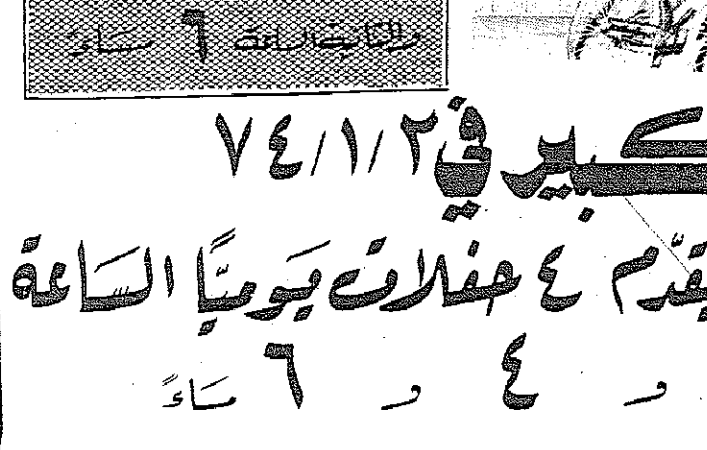 والثانية الساعة ٦ مساءً
كبير في ٧٤/١/٢
يقدّم ٤ حفلات يوميًا الساعة
و ٤ و ٦ مساءً